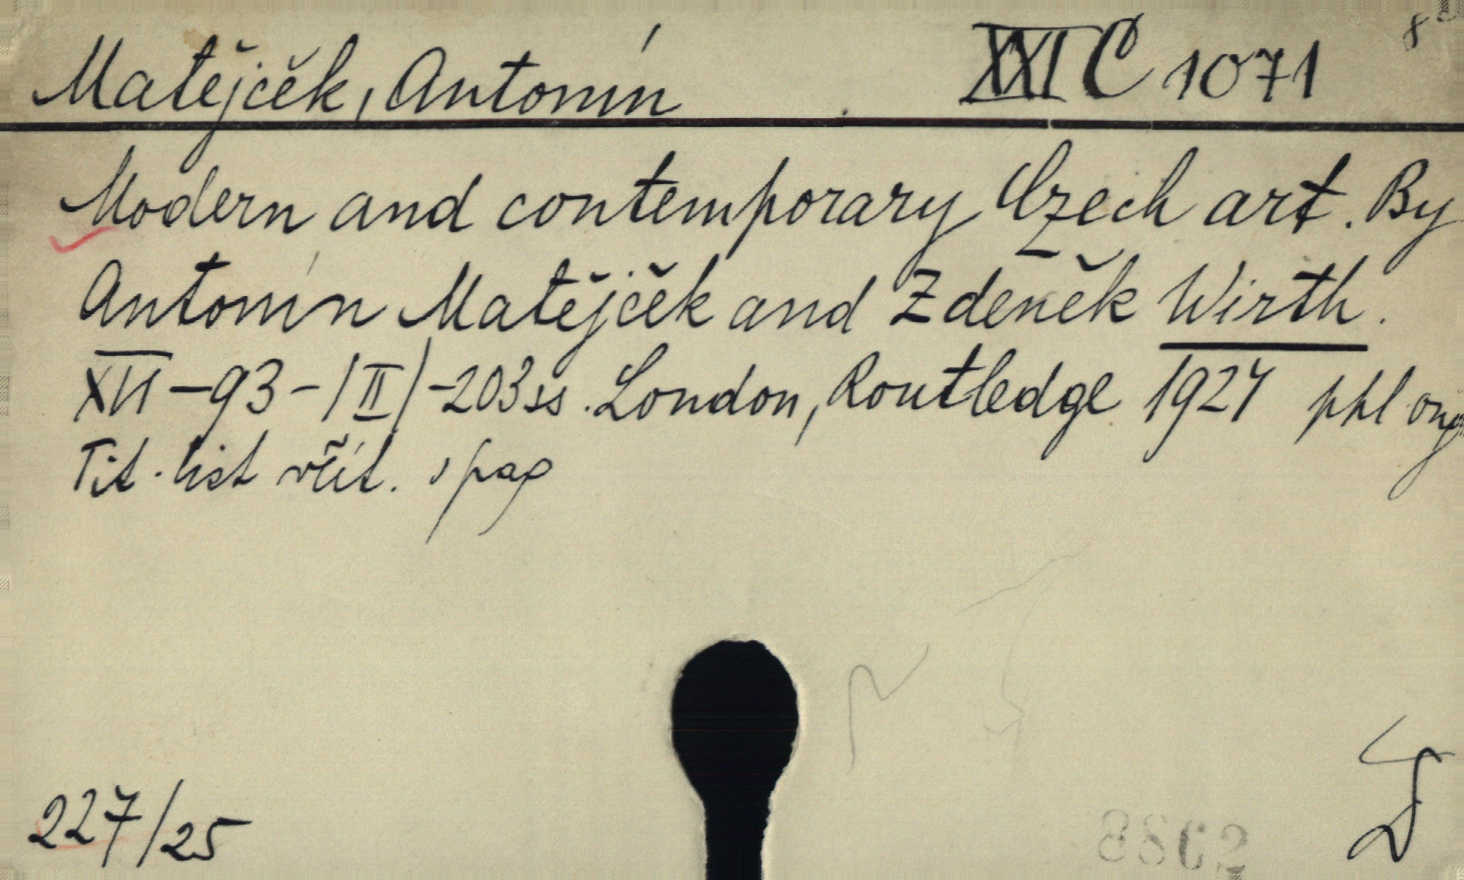 Matějček, Antonín XXI C 1071 8°
Modern and contemporary Czech art. By
Antonín Matějček and Zdeněk Wirth.
XII-93-/II/-203ss. London, Routledge 1924 ppl orig
Tit. list včít. s pag
227/25
8862